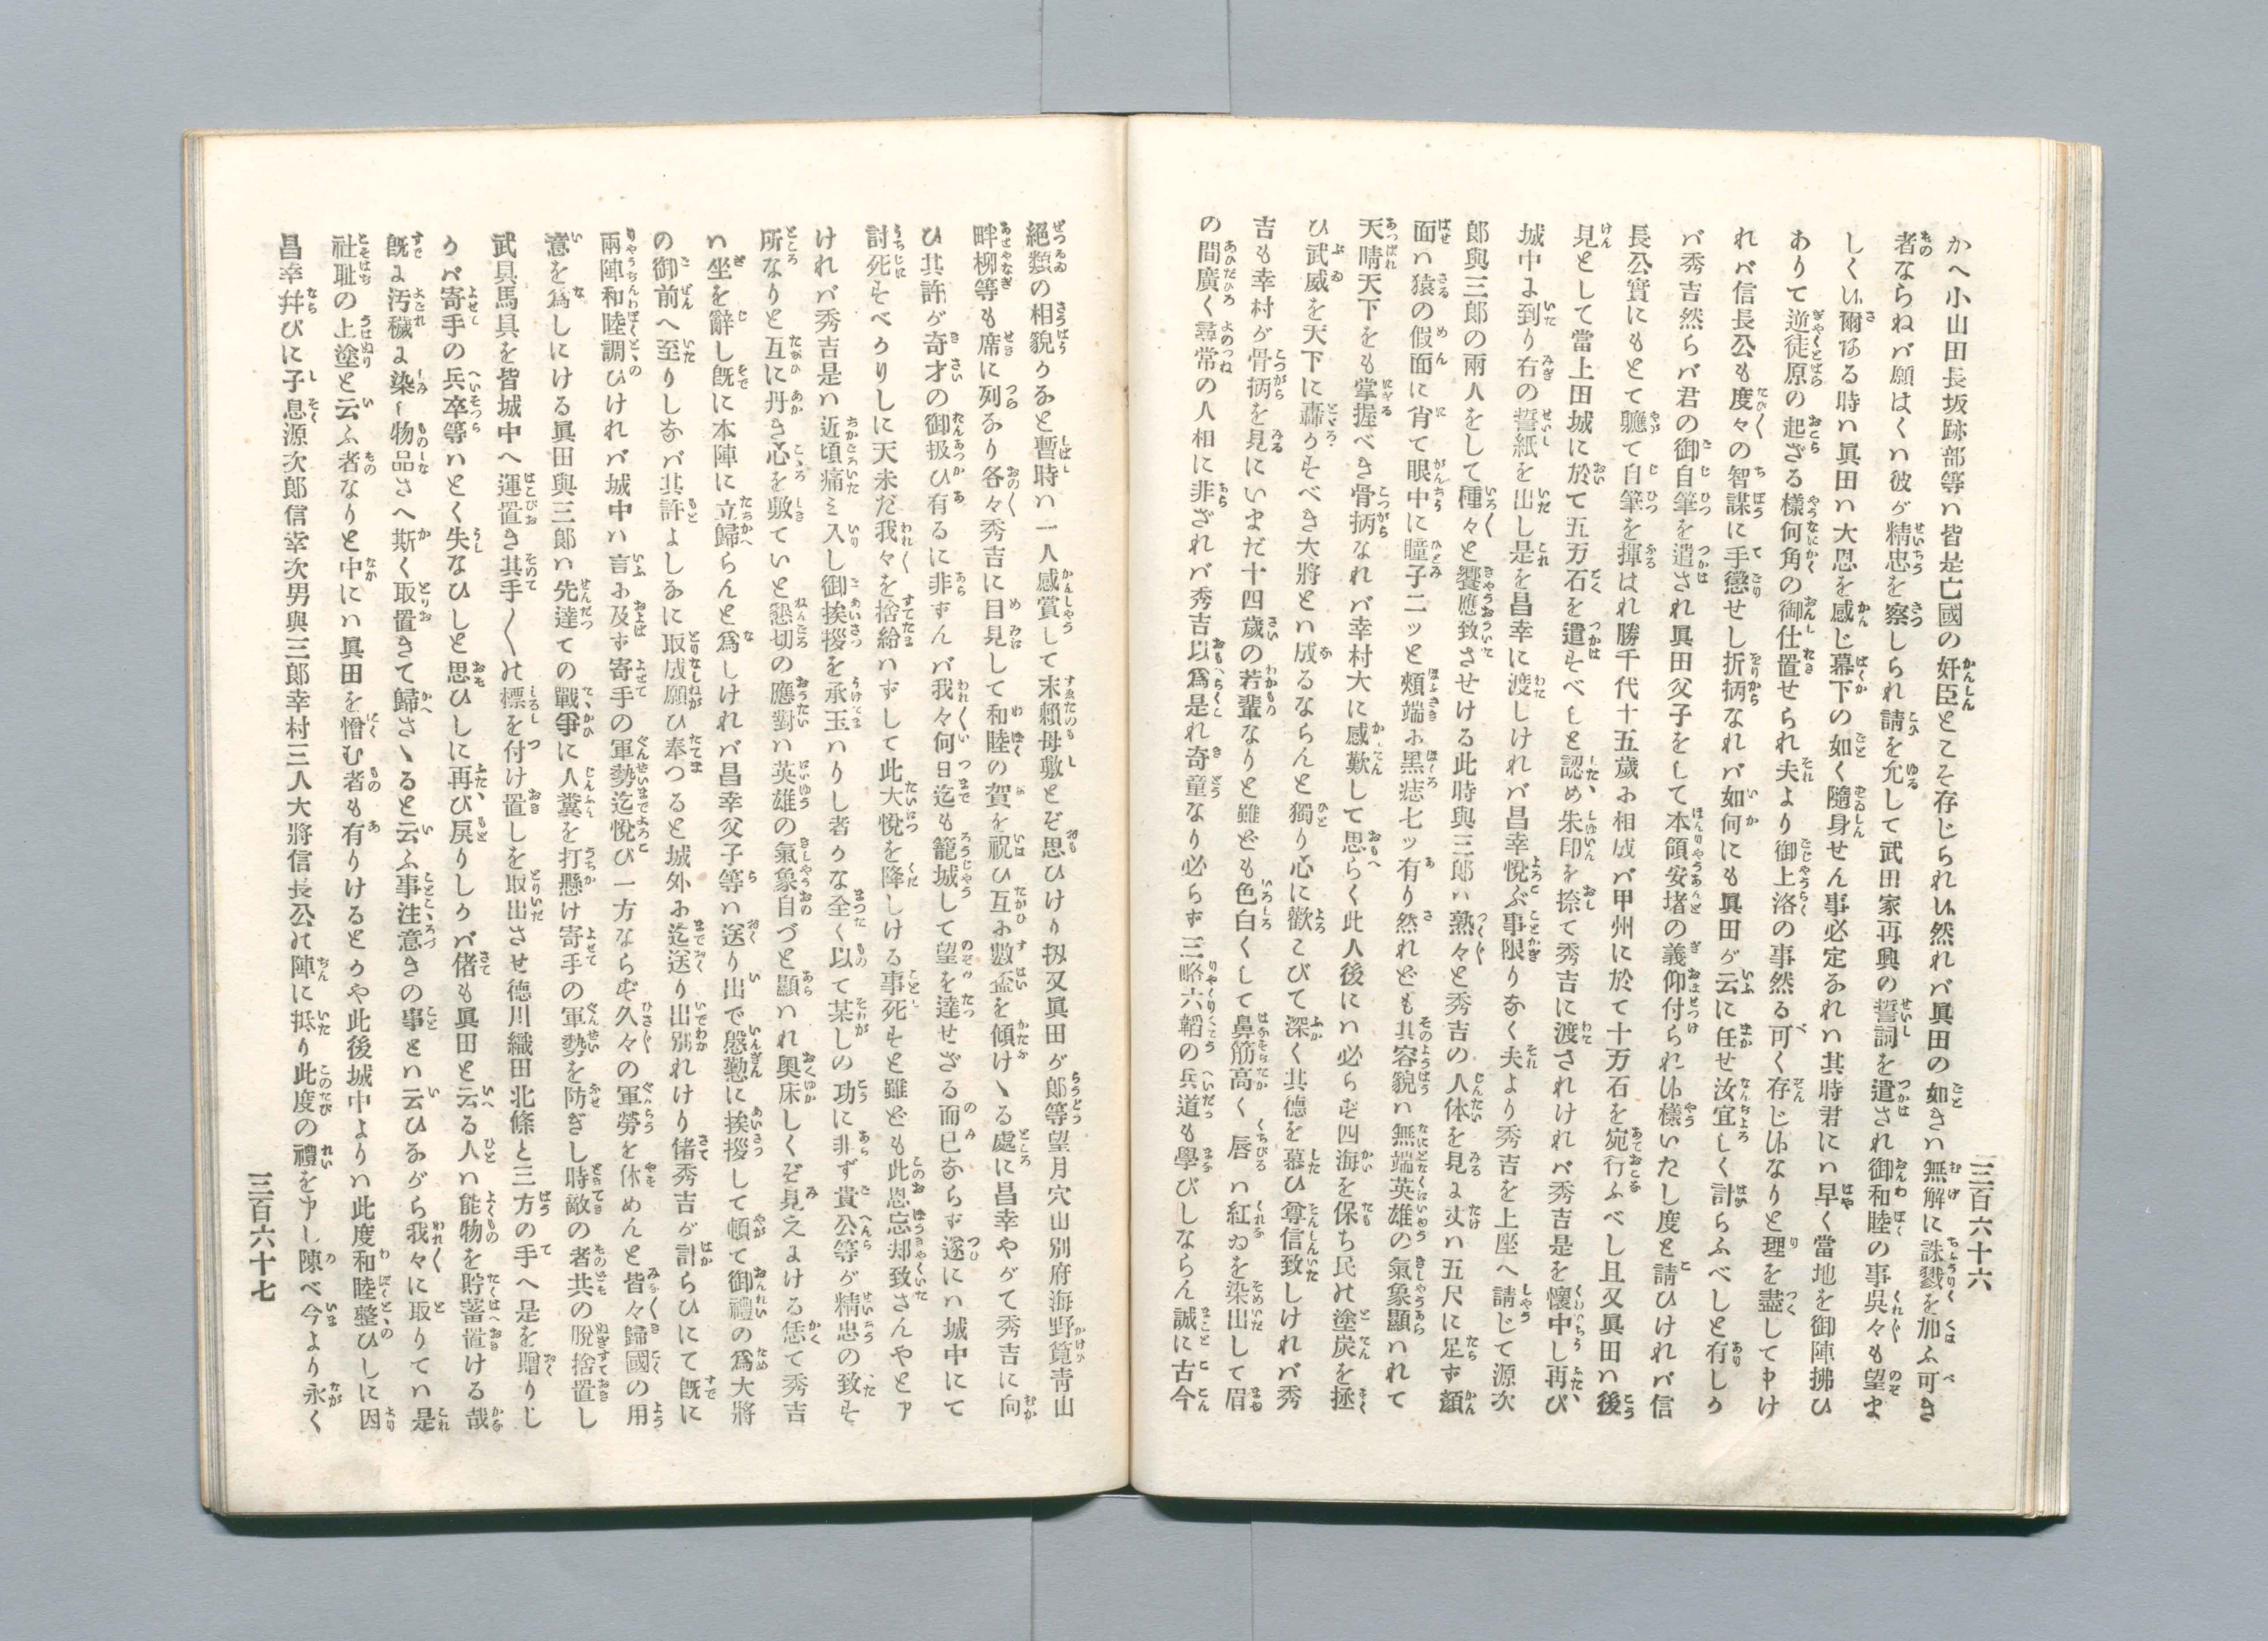 三百六十六
かへ小山田長坂跡部等ハ皆是亡國の奸臣とこそ存じられ候然れバ眞田の如きハ無解に誅戮を加ふ可き
者ならねバ願はくハ彼が精忠を察しられ請を允して武田家再興の誓詞を遣され御和睦の事呉々も望ま
しく候爾なる時ハ眞田ハ大恩を感じ幕下の如く隨身せん事必定なれハ其時君にハ早く當地を御陣拂ひ
ありて逆徒原の起ざる樣何角の御仕置せられ夫より御上洛の事然る可く存じ候なりと理を盡して申け
れバ信長公も度々の智謀に手懲せし折柄なれバ如何にも眞田が云に任せ汝宜しく計らふべしと有しか
バ秀吉然らバ君の御自筆を遣され眞田父子をして本領安堵の義仰付られ候樣いたし度と請ひけれバ信
長公實にもとて聽て自筆を揮はれ勝千代十五歳に相成バ甲州に於て十万石を宛行ふべし且又眞田ハ後
見として當上田城に於て五万石を遣すべしと認め朱印を捺て秀吉に渡されけれバ秀吉是を懷中し再び
城中に到り右の誓紙を出し是を昌幸に渡しけれバ昌幸悅ぶ事限りなく夫より秀吉を上座へ請じて源次
郎與三郎の兩人をして種々と饗應致させける此時與三郎ハ熟々と秀吉の人体を見るに丈ハ五尺に足ず顏
面ハ猿の假面に肖て眼中に瞳子二ッと頰端に黑痣七ッ有り然れども其容貌ハ無端英雄の氣象顯ハれて
天晴天下をも掌握べき骨柄なれバ幸村大に感歎して思らく此人後にハ必らず四海を保ち民の塗炭を拯
ひ武威を天下に轟かすべき大將とハ成るならんと獨り心に歡こびて深く其德を慕ひ尊信致しけれバ秀
吉も幸村が骨柄を見るにいまだ十四歳の若輩なりと雖ども色白くして鼻筋高く唇ハ紅ゐを染出して眉
の間廣く尋常の人相に非ざれバ秀吉以爲是れ奇童なり必らず三略六韜の兵道も學びしならん誠に古今
絕類の相貌かなと暫時ハ一人感賞して末賴母敷とぞ思ひけり扨又眞田が郎等望月穴山別府海野筧靑山
畔柳等も席に列なり各々秀吉に目見して和睦の賀を祝ひ互に數盃を傾けゝる處に昌幸やがて秀吉に向
ひ其許が奇才の御扱ひ有るに非ずんバ我々何日迄も籠城して望を達せざる而已ならず遂にハ城中にて
討死すべかりしに天未だ我々を捨給ハずして此大悅を降しける事死すと雖ども此恩忘却致さんやと云
けれバ秀吉是ハ近頃痛み入し御挨拶を承玉ハりし者かな全く以て某しの功に非ず貴公等が精忠の致す
所なりと互に丹き心を敷ていと懇切の應對ハ英雄の氣象自づと顯ハれ奧床しくぞ見えまける恁て秀吉
ハ坐を辭し旣に本陣に立歸らんと爲しけれバ昌幸父子等ハ送り出で慇懃に挨拶して頓て御禮の爲大將
の御前へ至りしなバ其許よしなに取成願ひ奉つると城外に迄送り出別れけり偖秀吉が計らひにて旣に
兩陣和睦調ひけれバ城中ハ言に及ず寄手の軍勢迄悅び一方ならず久々の軍勞を休めんと皆々歸國の用
意を爲しにける眞田與三郎ハ先達ての戰爭に人糞を打懸け寄手の軍勢を防ぎし時敵の者共の脫捨置し
武具馬具を皆城中へ運置き其手〱の標を付け置しを取出させ德川織田北條と三方の手へ是を贈りし
かバ寄手の兵卒等ハとく失なひしと思ひしに再び戾りしかバ偖も眞田と云る人ハ能物を貯蓄置ける哉
旣に汚穢に染し物品さへ斯く取置きて歸さゝると云ふ事注意きの事とハ云ひながら我々に取りてハ是
社耻の上塗と云ふ者なりと中にハ眞田を憎む者も有りけるとかや此後城中よりハ此度和睦整ひしに因
昌幸幷びに子息源次郎信幸次男與三郎幸村三人大將信長公の陣に抵り此度の禮を申し陳べ今より永く
三百六十七